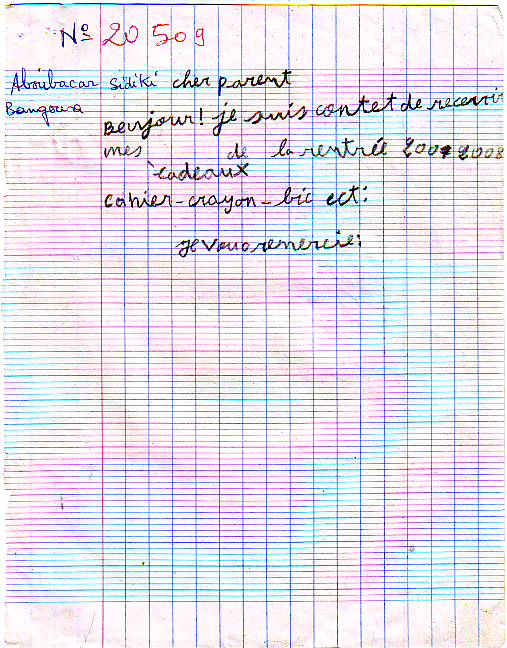 Nº 20 509
Aboubacar Sidiki cher parent
Bangoura
Bonjour! je suis contet de recevoir
mes cadeaux de la rentrée 2007 2008
cahier-crayon-bic ect:
je vous remercie: